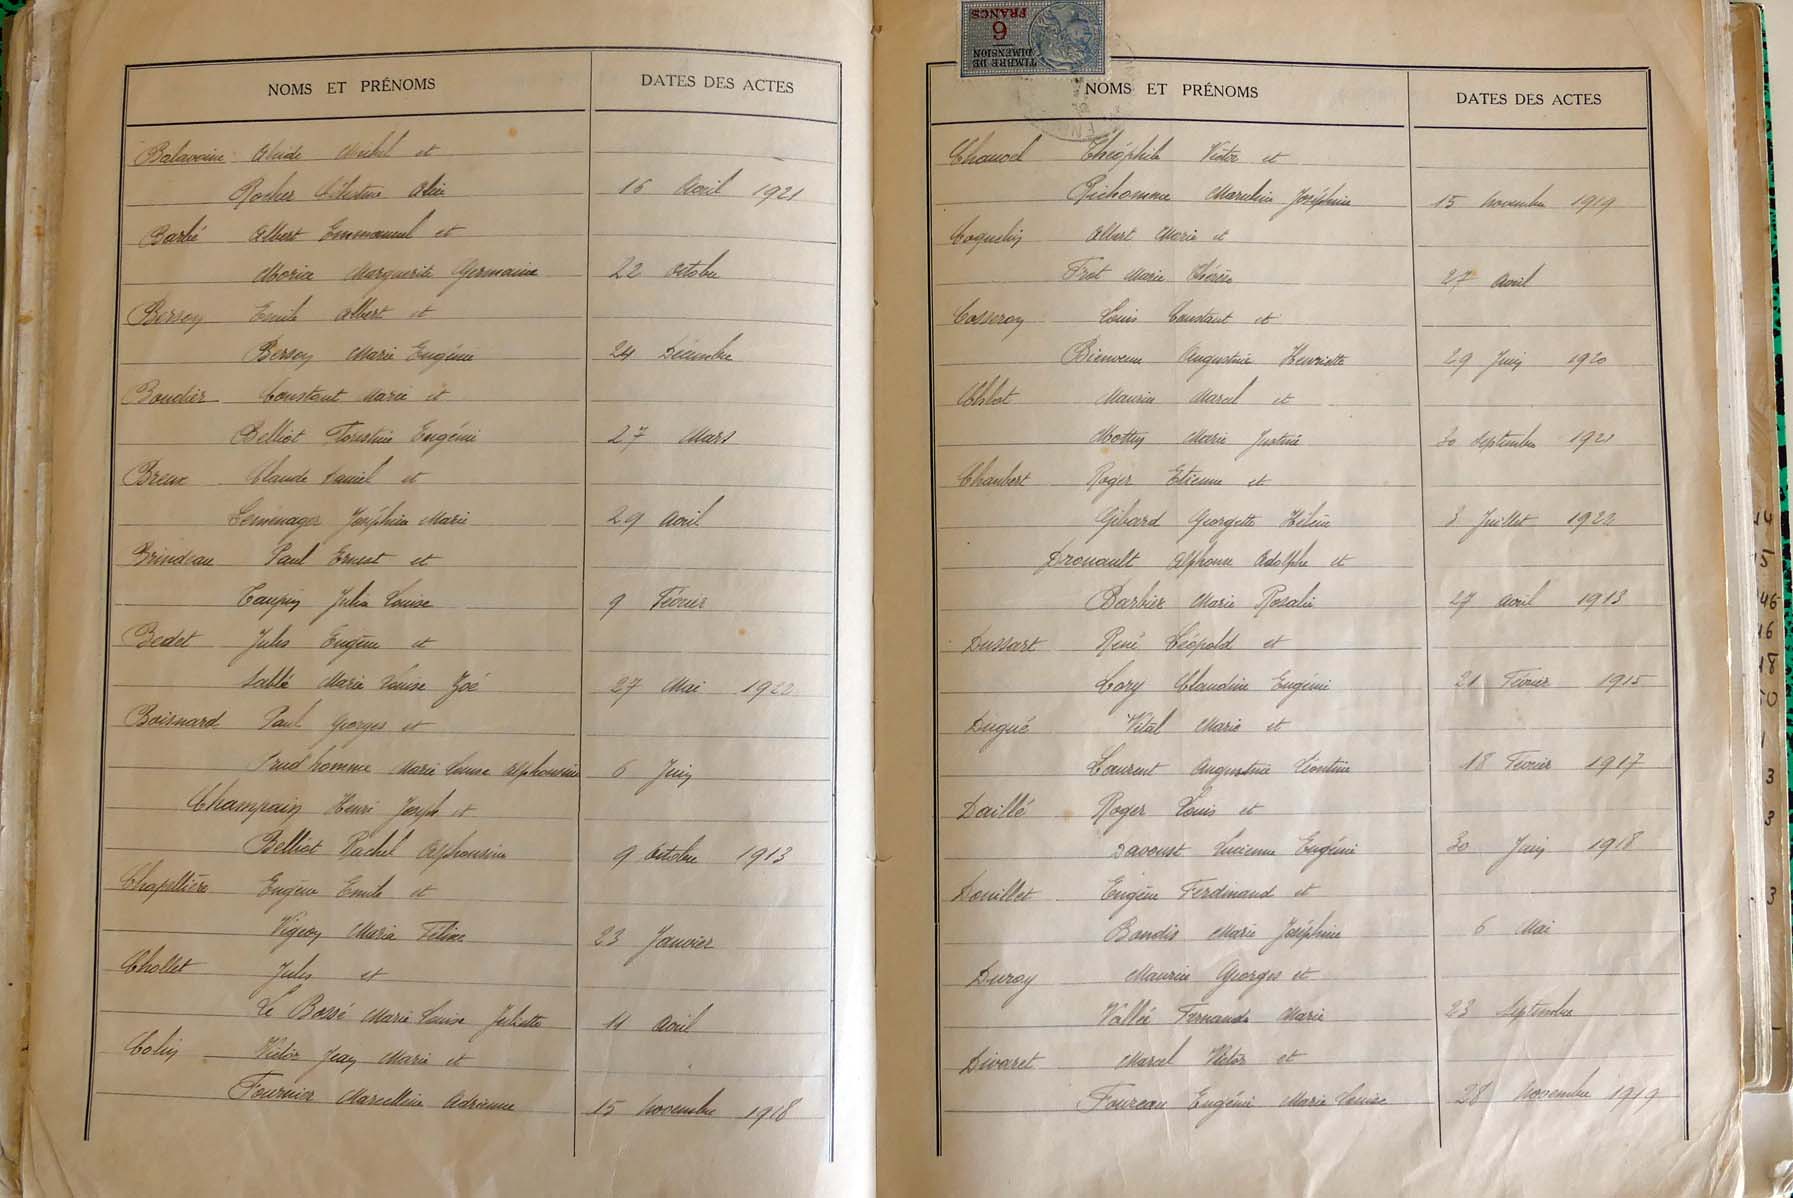 NOMS ET PRÉNOMS DATES DES ACTES
Balavoine Alcide Michel et
Rocher Célestine Alice 16 Avril 1921
Barbé Albert Emmanuel et
Moria Marguerite Germaine 22 Octobre
Bersoy Emile Albert et
Bersoy Marie Eugénie 24 Décembre
Boudier Constant Marie et
Belliot Florestine Eugénie 27 Mars
Breux Claude Daniel et
Lemenager Joséphine Marie 29 Avril
Brindeau Paul Ernest et
Taupin Julia Louise 9 Février
Bedet Jules Eugène et
Sablé Marie Louise Zoé 27 Mai 1922
Boisnard Paul Georges et
Prudhomme Marie Louise Alphonsine 6 Juin
Champain Henri Joseph et
Belliot Rachel Alphonsine 9 Octobre 1913
Chapellière Eugène Emile et
Vigeon Maria 23 Janvier
Chollet Jules et
Le Bossé Marie Louise Juliette 11 Avril
Colin Victor Jean Marie et
Fournier Marcelline Adrienne 15 Novembre 1918
TIMBRE DE DIMENSION
6 FRANCS
NOMS ET PRÉNOMS DATES DES ACTES
Théophile Victor et
Richomme Joséphine 15 Novembre 1919
Coquelin Albert Marie et
Frot Marie Thérèse 27 Avril
Louis Constant et
Bienvenu Augustine Henriette 29 Juin 1920
Maurice Marcel et
Mottin Marie Justine 30 Septembre 1921
Chaubert Roger Etienne et
Gibard Georgette Hélène 3 Juillet 1922
Drouault Alphonse Adolphe et
Barbier Marie Rosalie 27 Avril 1913
Dussart René Léopold et
Lory Claudine Eugénie 21 Février 1915
Dugué Vital Marie et
Laurent Augustine Léontine 18 Février 1917
Daillé Roger Louis et
Davoust Lucienne Eugénie 30 Juin 1918
Douillet Eugène Ferdinand et
Marie Joséphine 6 Mai
Duroy Maurice Georges et
Vallée Fernande Marie 23 Septembre
Divaret Marcel Victor et
Foureau Eugénie Marie Louise 28 Novembre 1919